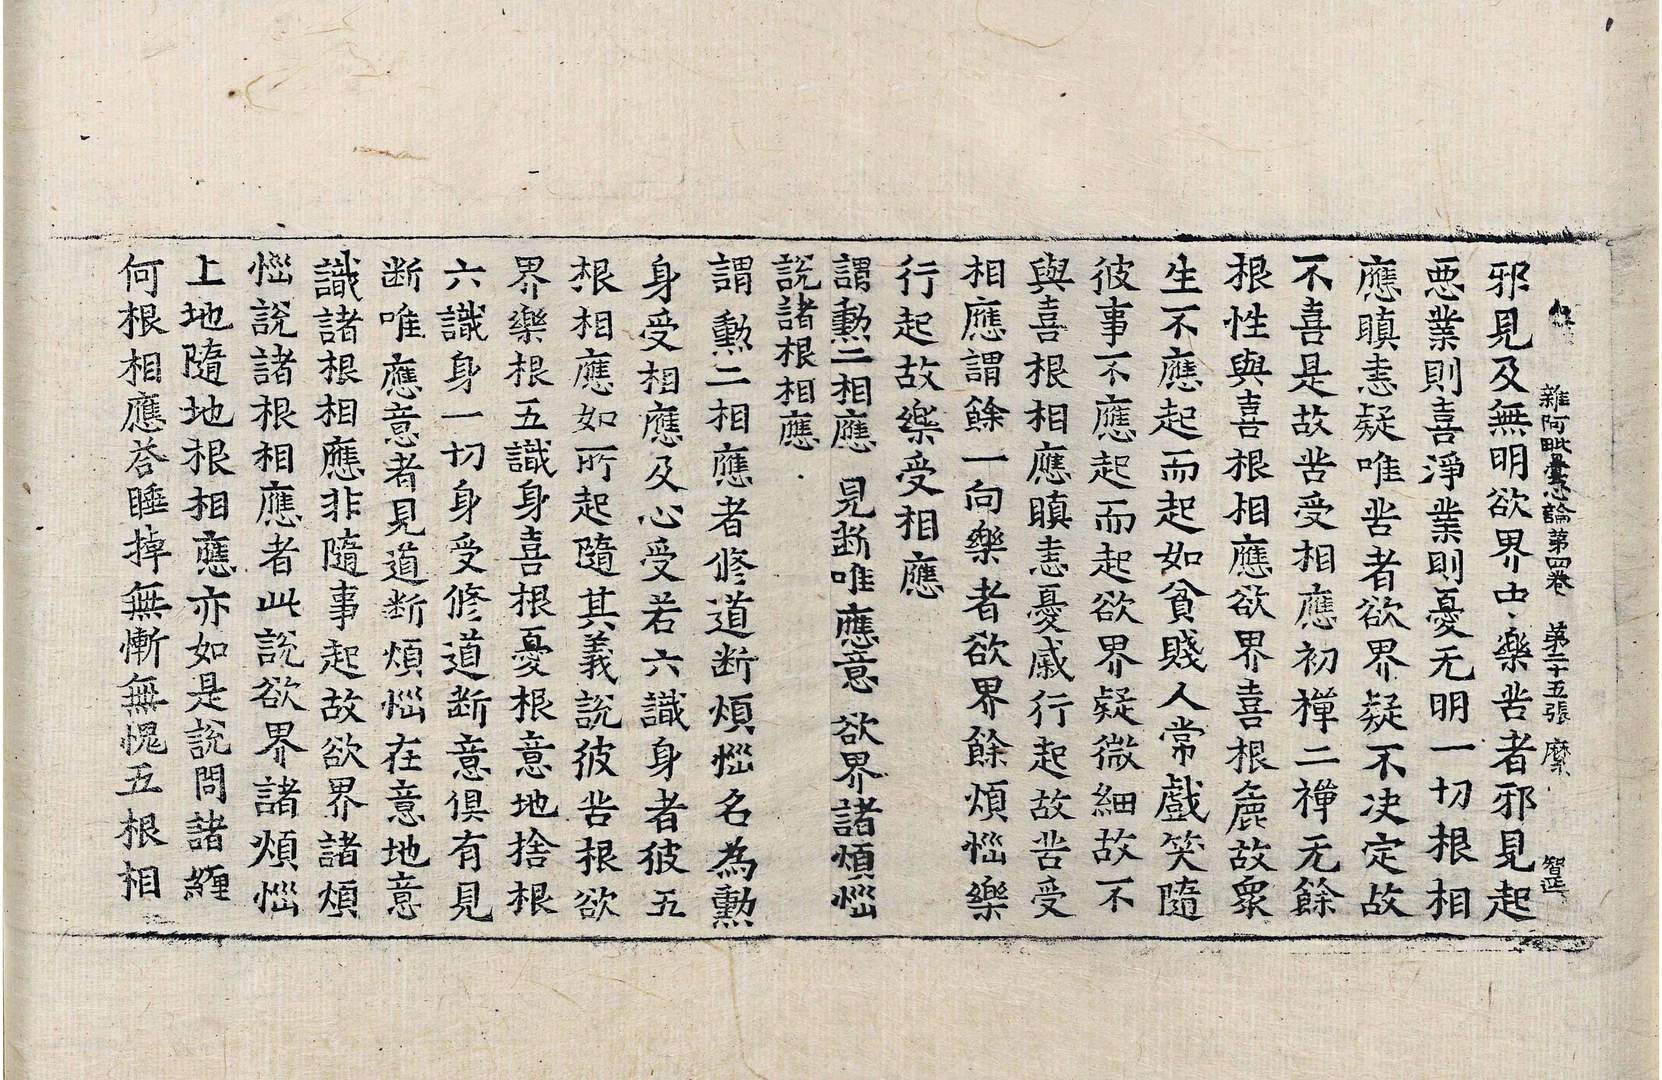 雜阿毗曇心論第四卷 第二十五張 麋 智
邪見及無明欲界中樂苦者邪見起
惡業則喜淨業則憂无明一切根相
應瞋恚疑唯苦者欲界疑不决定故
不喜是故苦受相應初禅二禅无餘
根性與喜根相應欲界喜根麁故衆
生不應起而起如貧賤人常戲笑隨
彼事不應起而起欲界疑微細故不
與喜根相應瞋恚憂慼行起故苦受
相應謂餘一向樂者欲界餘煩惱樂
行起故樂受相應
謂勳二相應 見断唯應意 欲界諸煩惱
說諸根相應
謂勳二相應者修道断煩惱名為勳
身受相應及心受若六識身者彼五
根相應如所起隨其義說彼苦根欲
界樂根五識身喜根憂根意地捨根
六識身一切身受修道断意俱有見
断唯應意者見道断煩惱在意地意
識諸根相應非隨事起故欲界諸煩
惱說諸根相應者此說欲界諸煩惱
上地隨地根相應亦如是說問諸纏
何根相應荅睡掉無慚無愧五根相